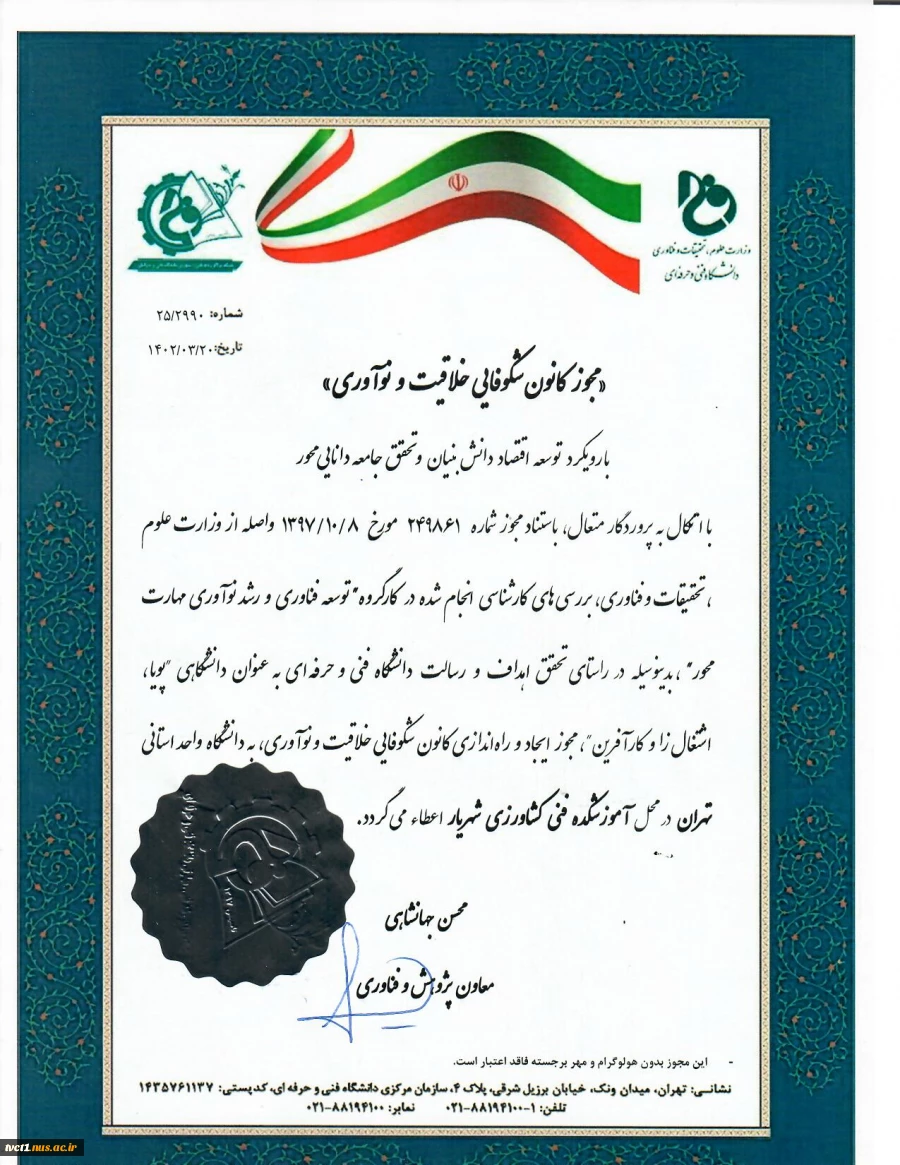 وزارت علوم، تحقیقات و فناوری
دانشگاه فنی و حرفه ای
شماره: ۲۵/۲۹۹۰
تاریخ: ۱۴۰۲/۰۳/۲۰
«مجوز کانون شکوفایی خلاقیت و نوآوری»
با رویکرد توسعه اقتصاد دانش بنیان و تحقق جامعه دانایی محور
با اتکال به پروردگار متعال، باستناد مجوز شماره ۲۴۹۸۶۱ مورخ ۱۳۹۷/۱۰/۸ واصله از وزارت علوم
، تحقیقات و فناوری، بررسی های کارشناسی انجام شده در کارگروه "توسعه فناوری و رشد نوآوری مهارت
محور"، بدینوسیله در راستای تحقق اهداف و رسالت دانشگاه فنی و حرفه ای به عنوان دانشگاهی "پویا،
اشتغال زا و کارآفرین"، مجوز ایجاد و راه اندازی کانون شکوفایی خلاقیت و نوآوری، به دانشگاه واحد استانی
تهران در محل آموزشکده فنی کشاورزی شهریار اعطاء می گردد.
محسن جهانشاهی
معاون پژوهش و فناوری
- این مجوز بدون هولوگرام و مهر برجسته فاقد اعتبار است.
نشانی: تهران، میدان ونک، خیابان برزیل شرقی، پلاک ۴، سازمان مرکزی دانشگاه فنی و حرفه ای، کدپستی: ۱۴۳۵۷۶۱۱۳۷
تلفن: ۱-۸۸۱۹۴۱۰۰-۰۲۱ نمابر: ۸۸۱۹۴۱۰۰-۰۲۱
tvct1.nus.ac.ir